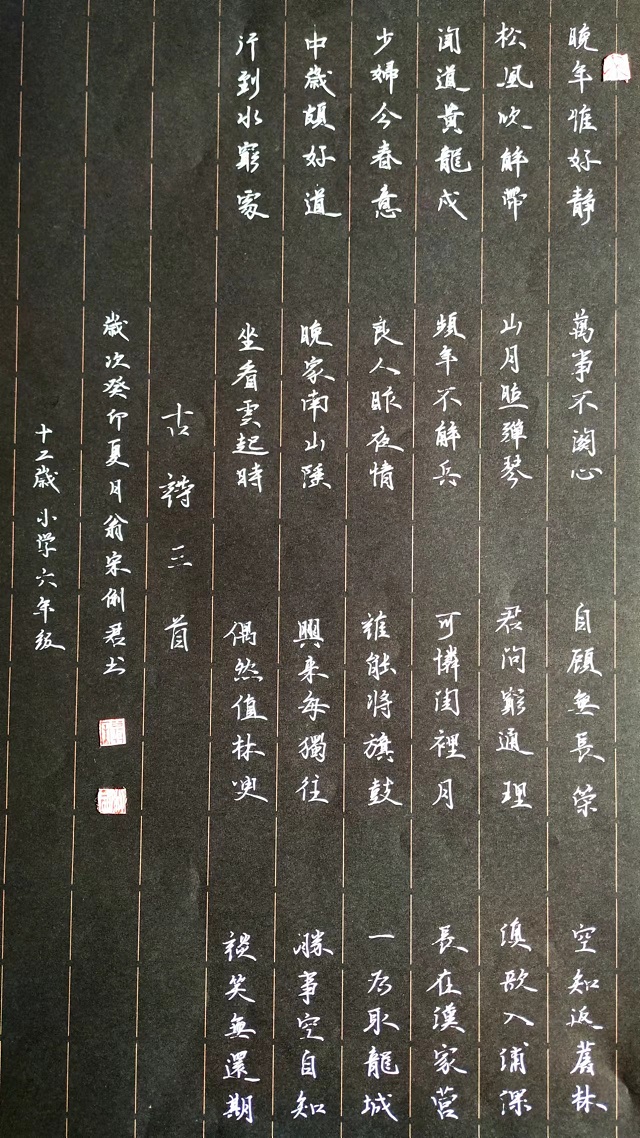 晚年惟好靜 萬事不關心 自顧無長策 空知返舊林
松風吹解帶 山月照彈琴 君問窮通理 漁歌入浦深
聞道黃龍戍 頻年不解兵 可憐閨裡月 長在漢家營
少婦今春意 良人昨夜情 誰能將旗鼓 一為取龍城
中歲頗好道 晚家南山陲 興来每獨往 勝事空自知
行到水窮處 坐看雲起時 偶然值林叟 談笑無還期
古詩三首
歲次癸卯夏月翁宋俐君书
十二歲小学六年级